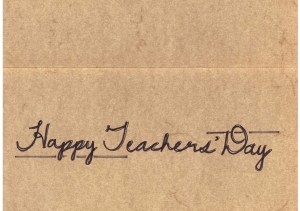 Happy Teachers' Day